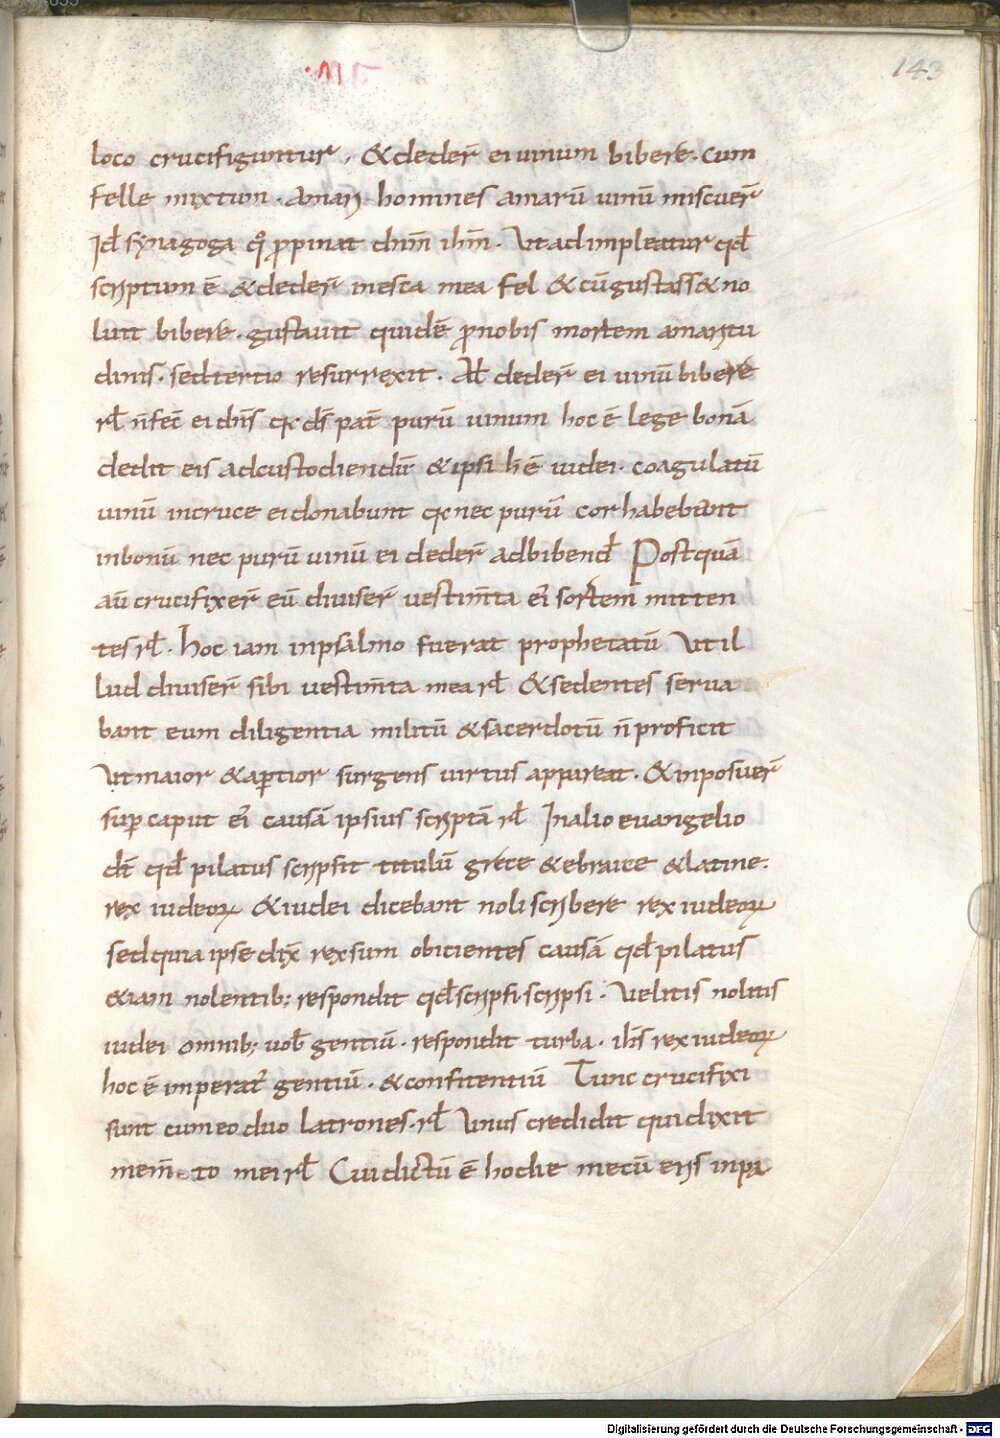 143
loco crucifiguntur, & deder̄ ei uinum bibere. cum
felle mixtum. amari homines amarū uinū miscuer̄
Id synagoga propinat dnm̄ ihm̄. Ut adimpleatur qd̄
scriptum ē & deder̄ in esca mea fel & cū gustass& no
luit bibere. gustauit quidē pro nobis mortem amaritu
dinis. sed tertio resurrexit. Al̄ deder̄ ei uinū bibere
rl̄ n̄ fec̄ ei dn̄s ds̄ pat̄ purū uinum hoc ē lege bonā
dedit eis ad custodiendū & ipsi iudei. coagulatū
uinū in cruce ei donabunt nec purū cor habebant
in bonū nec purū uinū ei deder̄ ad bibend̄ Postquā
aū crucifixer̄ eū diuiser̄ uestim̄ta ei sortem mitten
tes rl̄. hoc iam in psalmo fuerat prophetatū Ut il
lud diuiser̄ sibi uestim̄ta mea rl̄ & sedentes serua
bant eum diligentia militū & sacerdotū n̄ proficit
ut maior & apertior surgens uirtus appareat. & inposuer̄
sup̄ caput ei causā ipsius scriptā rl̄ In alio euangelio
dt̄ qd̄ pilatus scripsit titulū grece & ebraice & latine.
rex iudeoꝝ & iudei dicebant noli scribere rex iudeoꝝ
sed quia ipse dix̄ rex sum obicientes causā qd̄ pilatus
&iam nolentib; respondit qd̄ scripsi scripsi. Uelitis nolitis
iudei omnib; gentiū. respondit turba. ihs̄ rex iudeoꝝ
hoc ē imperat̄ gentiū. & confitentiū Tunc crucifixi
sunt cum eo duo latrones. rl̄ Unus credidit qui dixit
mem̄to mei rl̄ Cui dictū ē hodie mecū eris in pa
Digitalisierung gefördert durch die Deutsche Forschungsgemeinschaft - DFG